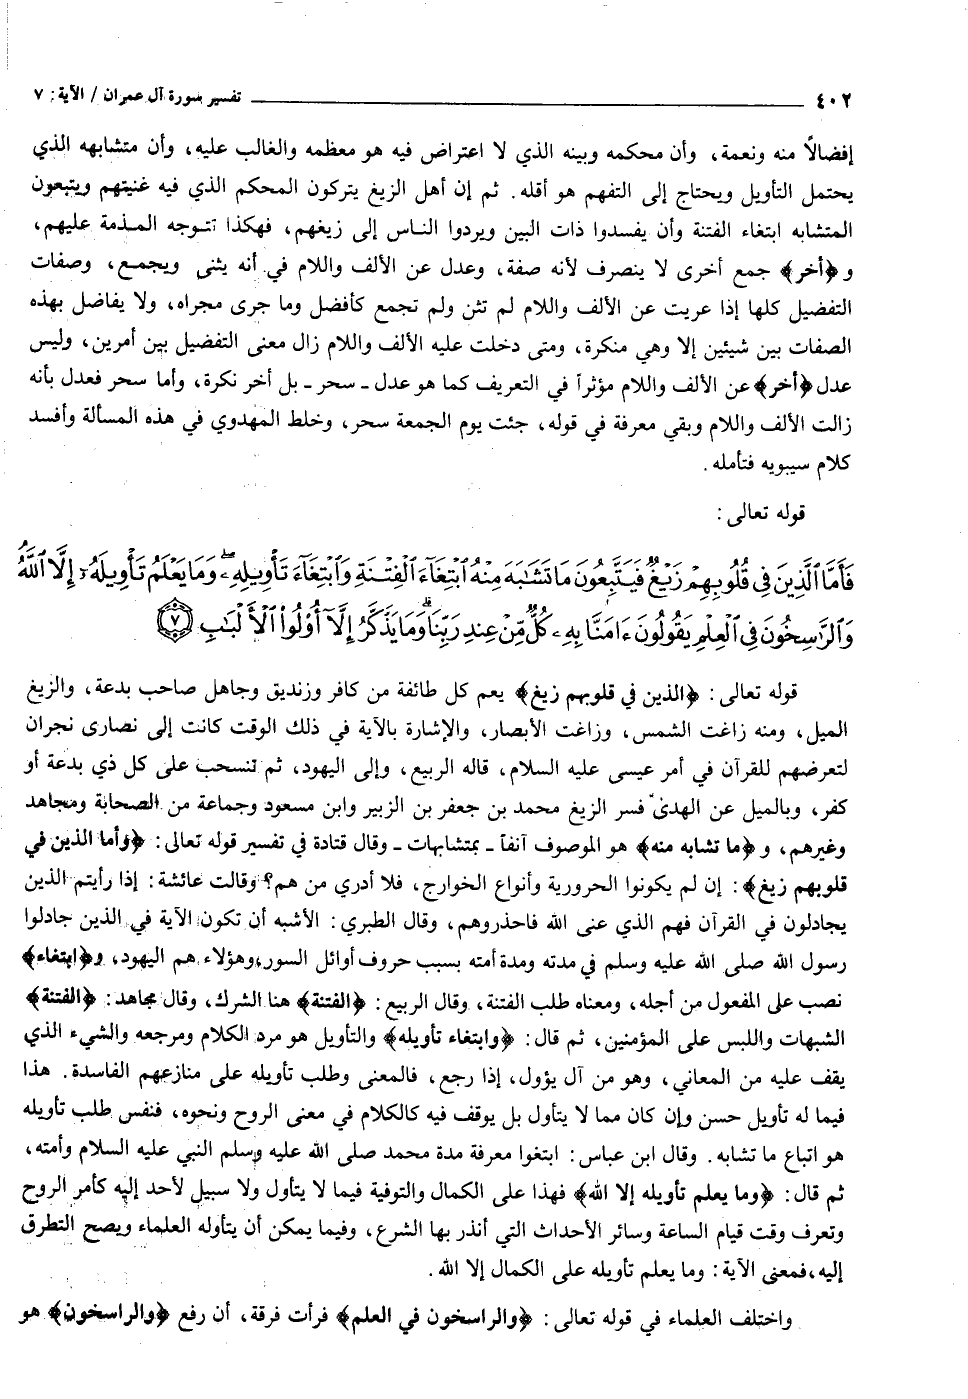 ٤٠٢ تفسير سورة آل عمران / الآية: ٧
إفضالاً منه ونعمة، وأن محكمه وبينه الذي لا اعتراض فيه هو معظمه والغالب عليه، وأن متشابهه الذي
يحتمل التأويل ويحتاج إلى التفهم هو أقله. ثم إن أهل الزيغ يتركون المحكم الذي فيه غنيتهم ويتبعون
المتشابه ابتغاء الفتنة وأن يفسدوا ذات البين ويردوا الناس إلى زيغهم، فهكذا تتوجه المذمة عليهم،
و﴿أخر﴾ جمع أخرى لا ينصرف لأنه صفة، وعدل عن الألف واللام في أنه يثنى ويجمع، وصفات
التفضيل كلها إذا عريت عن الألف واللام لم تثن ولم تجمع كأفضل وما جرى مجراه، ولا يفاضل بهذه
الصفات بين شيئين إلا وهي منكرة، ومتى دخلت عليه الألف واللام زال معنى التفضيل بين أمرين، وليس
عدل ﴿أخر﴾ عن الألف واللام مؤثراً في التعريف كما هو عدل ـ سحر ـ بل أخر نكرة، وأما سحر فعدل بأنه
زالت الألف واللام وبقي معرفة في قوله، جئت يوم الجمعة سحر، وخلط المهدوي في هذه المسألة وأفسد
كلام سيبويه فتأمله.
قوله تعالى:
فَأَمَّا ٱلَّذِينَ فِى قُلُوبِهِمْ زَيْغٌ فَيَتَّبِعُونَ مَا تَشَٰبَهَ مِنْهُ ٱبْتِغَآءَ ٱلْفِتْنَةِ وَٱبْتِغَآءَ تَأْوِيلِهِۦ ۖ وَمَا يَعْلَمُ تَأْوِيلَهُۥٓ إِلَّا ٱللَّهُ
وَٱلرَّٰسِخُونَ فِى ٱلْعِلْمِ يَقُولُونَ ءَامَنَّا بِهِۦ كُلٌّ مِّنْ عِندِ رَبِّنَا ۗ وَمَا يَذَّكَّرُ إِلَّآ أُو۟لُوا۟ ٱلْأَلْبَٰبِ ٧
قوله تعالى: ﴿الذين في قلوبهم زيغ﴾ يعم كل طائفة من كافر وزنديق وجاهل صاحب بدعة، والزيغ
الميل، ومنه زاغت الشمس، وزاغت الأبصار، والإشارة بالآية في ذلك الوقت كانت إلى نصارى نجران
لتعرضهم للقرآن في أمر عيسى عليه السلام، قاله الربيع، وإلى اليهود، ثم تنسحب على كل ذي بدعة أو
كفر، وبالميل عن الهدى فسر الزيغ محمد بن جعفر بن الزبير وابن مسعود وجماعة من الصحابة ومجاهد
وغيرهم، و﴿ما تشابه منه﴾ هو الموصوف آنفاً ـ بمتشابهات ـ وقال قتادة في تفسير قوله تعالى: ﴿وأما الذين في
قلوبهم زيغ﴾: إن لم يكونوا الحرورية وأنواع الخوارج، فلا أدري من هم؟ وقالت عائشة: إذا رأيتم الذين
يجادلون في القرآن فهم الذي عنى الله فاحذروهم، وقال الطبري: الأشبه أن تكون الآية في الذين جادلوا
رسول الله صلى الله عليه وسلم في مدته ومدة أمته بسبب حروف أوائل السور، وهؤلاء هم اليهود، و﴿ابتغاء﴾
نصب على المفعول من أجله، ومعناه طلب الفتنة، وقال الربيع: ﴿الفتنة﴾ هنا الشرك، وقال مجاهد: ﴿الفتنة﴾
الشبهات واللبس على المؤمنين، ثم قال: ﴿وابتغاء تأويله﴾ والتأويل هو مرد الكلام ومرجعه والشيء الذي
يقف عليه من المعاني، وهو من آل يؤول، إذا رجع، فالمعنى وطلب تأويله على منازعهم الفاسدة. هذا
فيما له تأويل حسن وإن كان مما لا يتأول بل يوقف فيه كالكلام في معنى الروح ونحوه، فنفس طلب تأويله
هو اتباع ما تشابه. وقال ابن عباس: ابتغوا معرفة مدة محمد صلى الله عليه وسلم النبي عليه السلام وأمته،
ثم قال: ﴿وما يعلم تأويله إلا الله﴾ فهذا على الكمال والتوفية فيما لا يتأول ولا سبيل لأحد إليه كأمر الروح
وتعرف وقت قيام الساعة وسائر الأحداث التي أنذر بها الشرع، وفيما يمكن أن يتأوله العلماء ويصح التطرق
إليه، فمعنى الآية: وما يعلم تأويله على الكمال إلا الله.
واختلف العلماء في قوله تعالى: ﴿والراسخون في العلم﴾ فرأت فرقة، أن رفع ﴿والراسخون﴾ هو